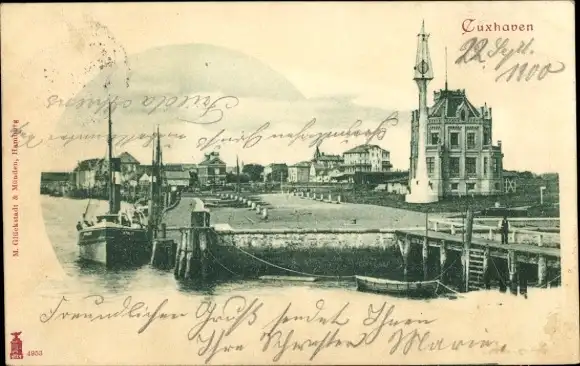 Cuxhaven
22 Sept.
1900
M. Glückstadt & Münden, Hamburg
Freundlichen Gruß sendet Ihnen
Ihre Schwester Marie.
4903